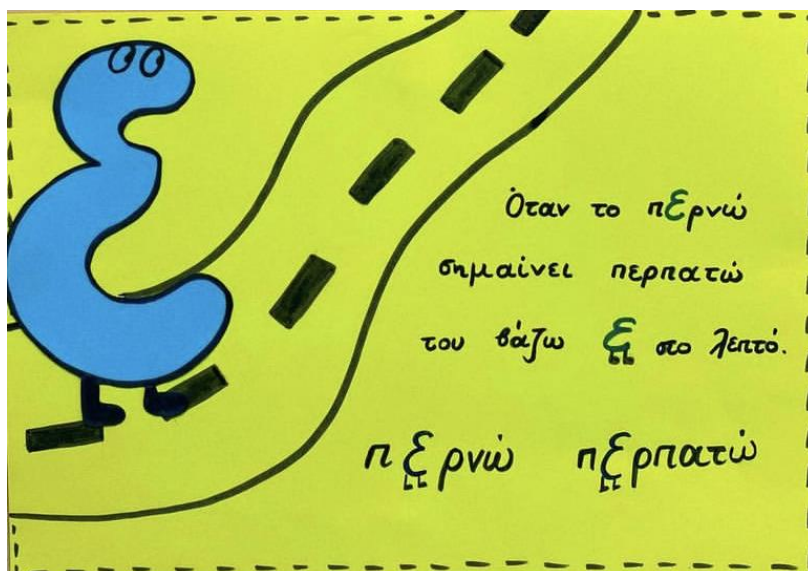 Όταν το περνώ
σημαίνει περπατώ
του βάζω ε στο λεπτό.
περνώ περπατώ